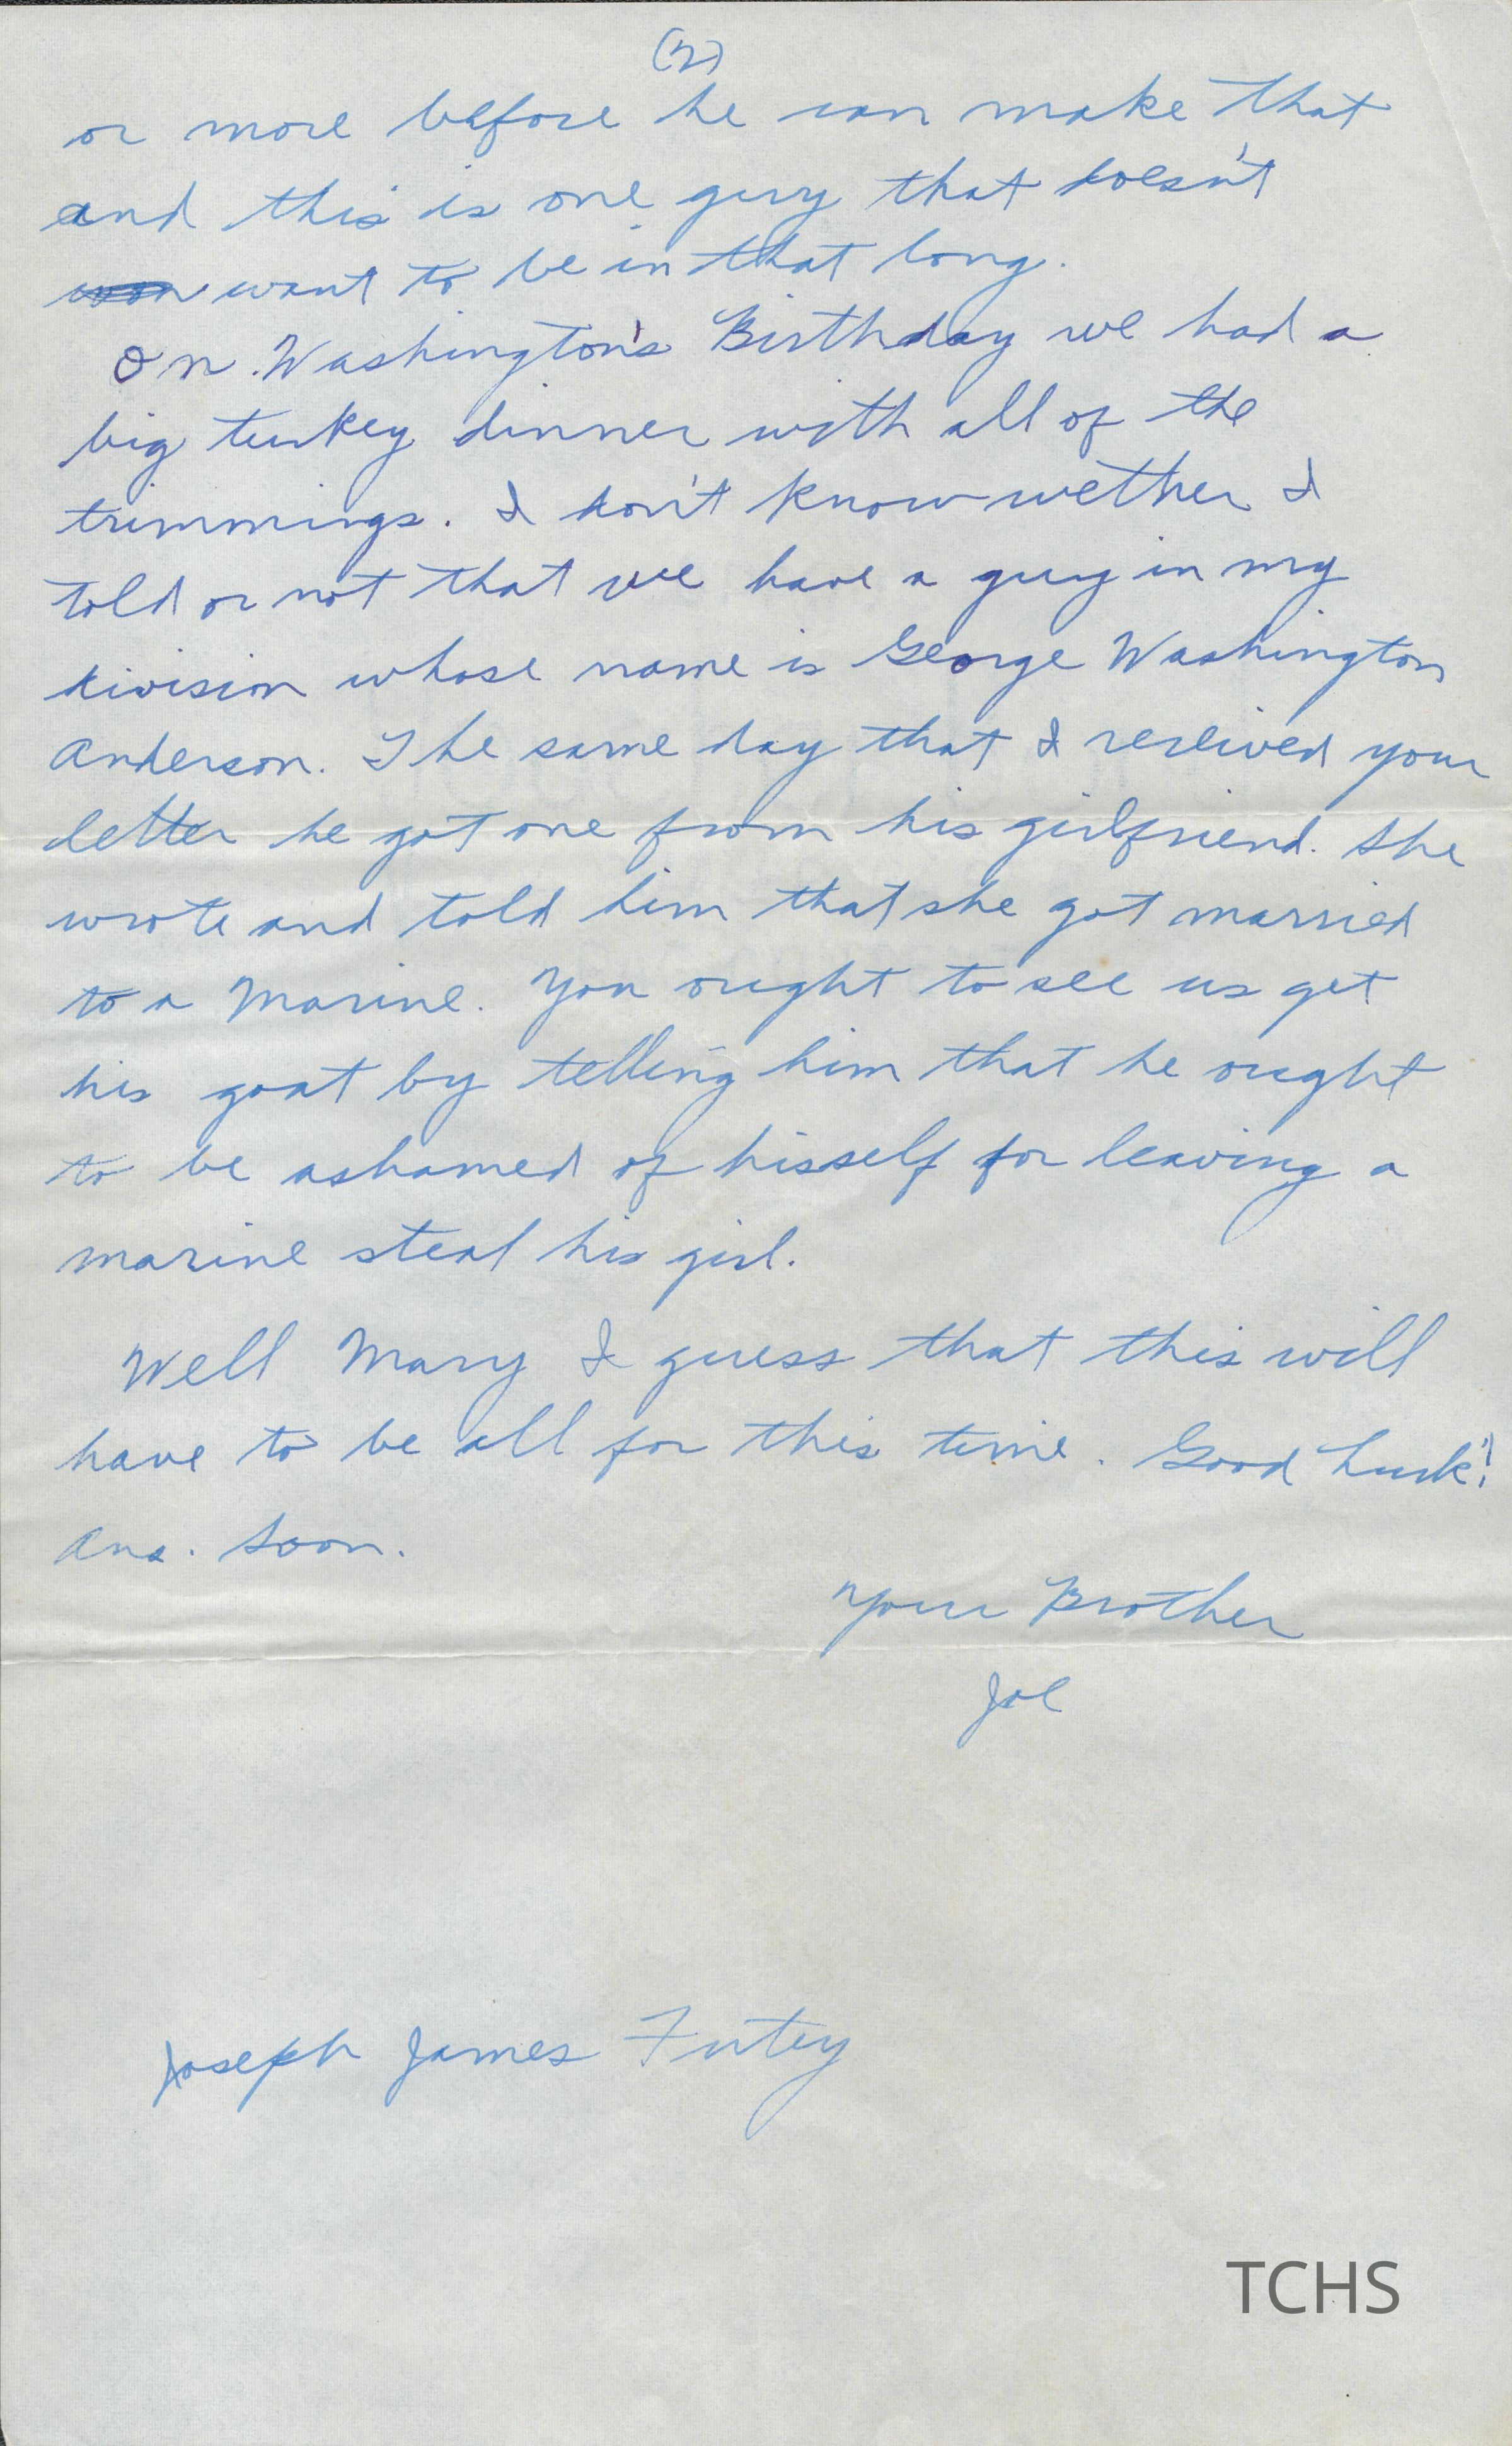 (2)
or more before he can make that
and this is one guy that doesn't
want to be in that long.
On Washington's Birthday we had a
big turkey dinner with all of the
trimmings. I don't know wether I
told or not that we have a guy in my
division whose name is George Washington
Anderson. The same day that I recieved your
letter he got one from his girlfriend. She
wrote and told him that she got married
to a Marine. You ought to see us get
his goat by telling him that he ought
to be ashamed of hisself for leaving a
marine steal his girl.
Well Mary I guess that this will
have to be all for this time. Good Luck!
Ans. Soon.
Your Brother
Joe
Joseph James Futey
TCHS